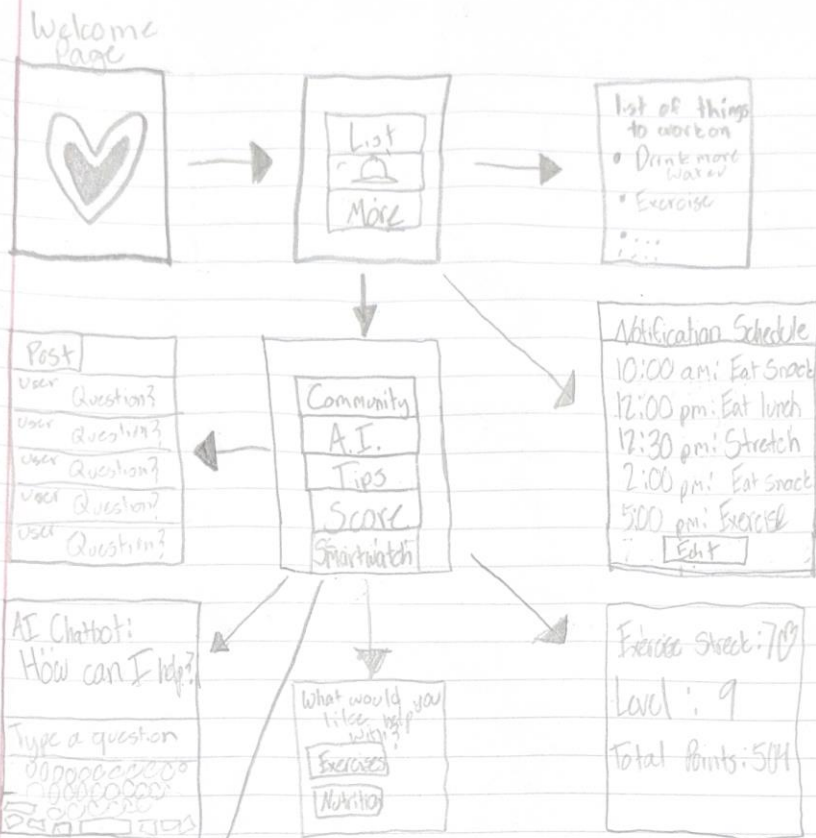 Welcome
Page
List
More
list of things
to work on
• Drink more
water
• Exercise
• ...
Post
user
Question?
user
Question?
user
Question?
user
Question?
user
Question?
Community
A.I.
Tips
Score
Smartwatch
Notification Schedule
10:00 am: Eat Snack
12:00 pm: Eat lunch
12:30 pm: Stretch
2:00 pm: Eat snack
5:00 pm: Exercise
Edit
AI Chatbot:
How can I help?
Type a question
What would you
like help
with?
Exercises
Nutrition
Exercise Streak: 70
Level: 9
Total Points: 504